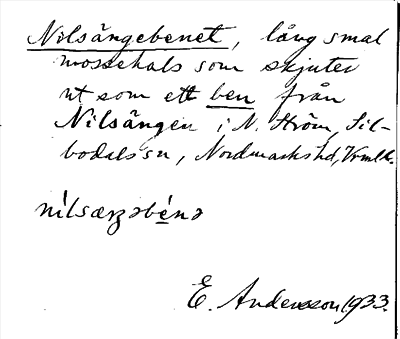 Nilsängebenet, lång smal
mossehals som skjuter
ut som ett ben från
Nilsängen i N. Ström, Sil-
bodals sn, Nordmarks hd, Vrmlk.
E. Andersson 1933.